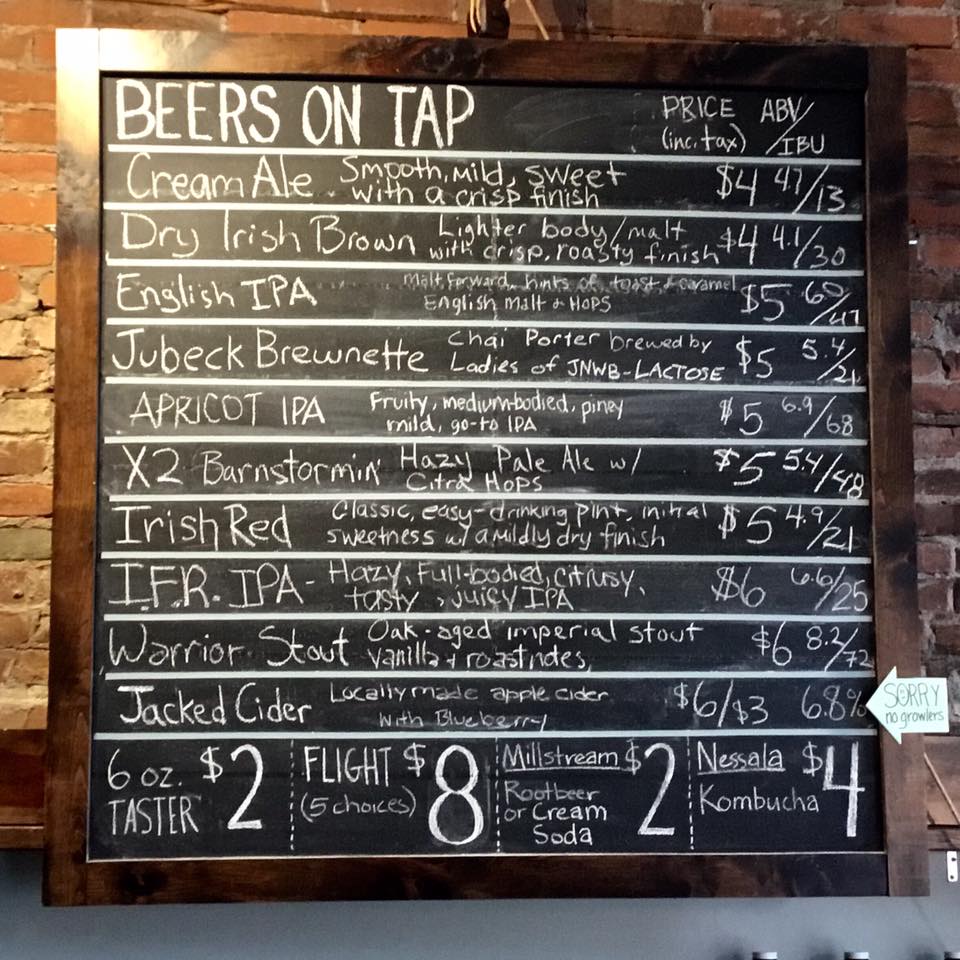 BEERS ON TAP
PRICE ABV/
(inc. tax) /IBU
Cream Ale Smooth, mild, sweet $4 4.7/13
with a crisp finish
Dry Irish Brown Lighter body/malt $4 4.1/30
with crisp, roasty finish
English IPA Malt forward, hints of toast & caramel $5 6.0/47
English Malt & Hops
Jubeck Brewnette Chai Porter brewed by $5 5.4/21
Ladies of JNWB-LACTOSE
APRICOT IPA Fruity, medium-bodied, piney $5 6.9/68
mild, go-to IPA
X2 Barnstormin' Hazy Pale Ale w/ $5 5.4/48
Citra Hops
Irish Red Classic, easy-drinking pint, initial $5 4.9/21
sweetness w/ a mildly dry finish
I.F.R. IPA - Hazy, Full-bodied, citrusy, $6 6.6/25
tasty, juicy IPA
Warrior Stout Oak-aged imperial stout $6 8.2/72
vanilla + roast notes,
Jacked Cider Locally made apple cider $6/$3 6.8%
with Blueberry
SORRY
no growlers
6 oz. $2
TASTER
FLIGHT $8
(5 choices)
Millstream $2
Rootbeer
or Cream
Soda
Nessala $4
Kombucha